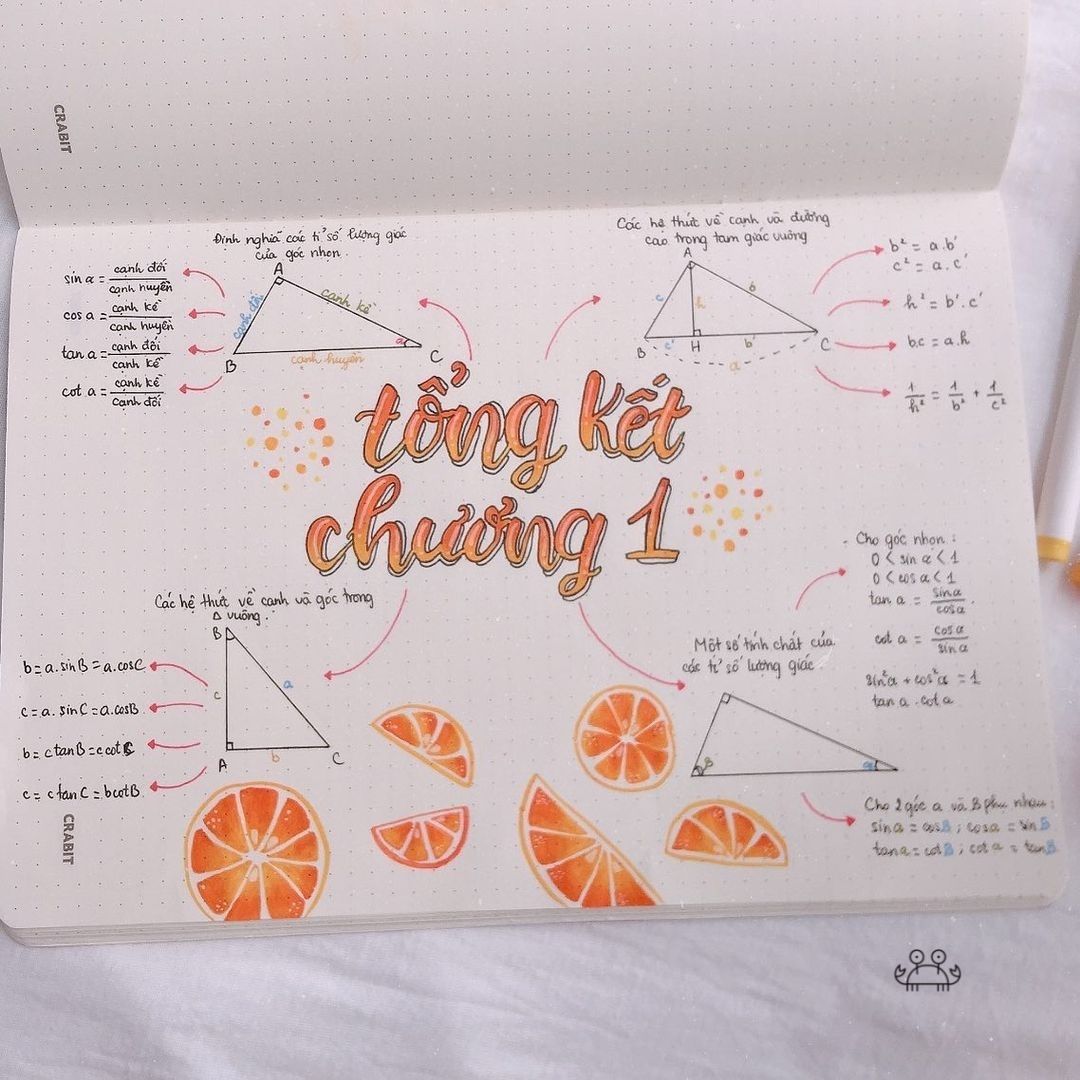 CRABIT
Định nghĩa các tỉ số lượng giác
của góc nhọn.
sin α = cạnh đối / cạnh huyền
cos α = cạnh kề / cạnh huyền
tan α = cạnh đối / cạnh kề
cot α = cạnh kề / cạnh đối
A
cạnh đối
cạnh kề
α
B
cạnh huyền
C
Các hệ thức về cạnh và đường
cao trong tam giác vuông
A
c
h
b
B
c'
H
b'
C
a
b² = a.b'
c² = a.c'
h² = b'.c'
b.c = a.h
1/h² = 1/b² + 1/c²
tổng kết
chương 1
Các hệ thức về cạnh và góc trong
Δ vuông.
B
c
a
A
b
C
b = a.sinB = a.cosC
c = a.sinC = a.cosB
b = c tanB = c cot
c = c tanC = b cotB
Một số tính chất của
các tỉ số lượng giác
B
α
- Cho góc nhọn :
0 < sin α < 1
0 < cos α < 1
tan α = sin α / cos α .
cot α = cos α / sin α
sin²α + cos²α = 1
tan α . cot α
Cho 2 góc α và B phụ nhau :
sin α = cosB ; cos α = sinB
tan α = cotB ; cot α = tanB
CRABIT